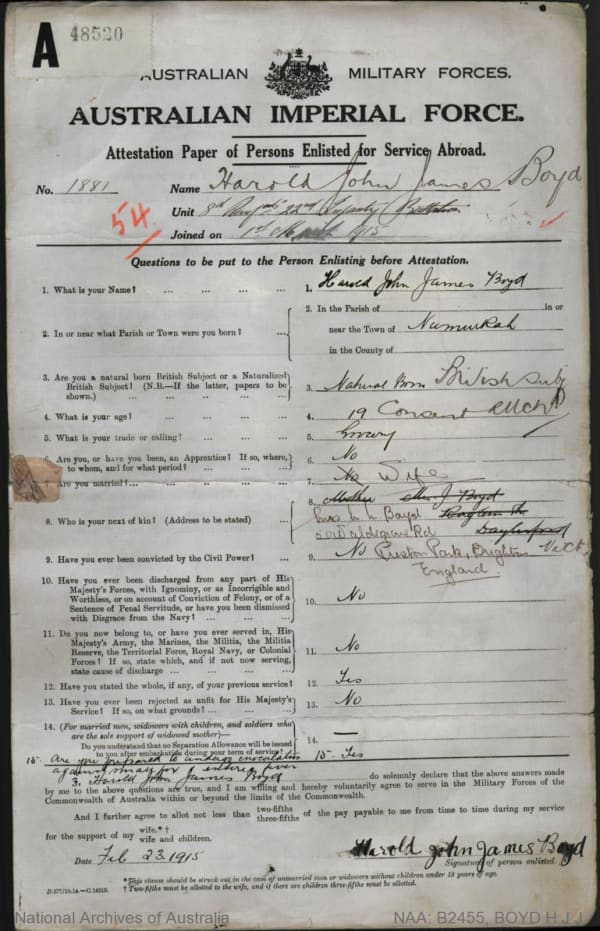 A 48520
AUSTRALIAN MILITARY FORCES.
AUSTRALIAN IMPERIAL FORCE.
Attestation Paper of Persons Enlisted for Service Abroad.
No. 1881 Name Harold John James Boyd
54. Unit 8th 22nd Infantry Battalion
Joined on 1915
Questions to be put to the Person Enlisting before Attestation.
1. What is your Name? ... ... ... ... 1. Harold John James Boyd
2. In or near what Parish or Town were you born? ... 2. In the Parish of in or
near the Town of Numurkah
in the County of
3. Are you a natural born British Subject or a Naturalized
British Subject? (N.B.—If the latter, papers to be
shown.) ... ... ... ... 3. Natural Born British Subj
4. What is your age? ... ... ... ... 4. 19 Consent
5. What is your trade or calling? ... ... ... 5. Grocery
6. Are you, or have you been, an Apprentice? If so, where,
to whom, and for what period? ... ... 6. No
7. Are you married?... ... ... ... 7. No Wife
8. Who is your next of kin? (Address to be stated) ... 8. Mother Mrs. J Boyd
Mrs Boyd
Rd Daylesford
Vict
9. Have you ever been convicted by the Civil Power? ... 9. No Preston Park, Brighton
England.
10. Have you ever been discharged from any part of His
Majesty's Forces, with Ignominy, or as Incorrigible and
Worthless, or on account of Conviction of Felony, or of a
Sentence of Penal Servitude, or have you been dismissed
with Disgrace from the Navy? ... ... ... 10. No
11. Do you now belong to, or have you ever served in, His
Majesty's Army, the Marines, the Militia, the Militia
Reserve, the Territorial Force, Royal Navy, or Colonial
Forces? If so, state which, and if not now serving,
state cause of discharge ... ... ... ... 11. No
12. Have you stated the whole, if any, of your previous service? 12. Yes
13. Have you ever been rejected as unfit for His Majesty's
Service? If so, on what grounds? ... ... ... 13. No
14. (For married men, widowers with children, and soldiers who
are the sole support of widowed mother)—
Do you understand that no Separation Allowance will be issued
to you after embarkation during your term of service? 14. —
15. Are you prepared to undergo inoculation 15. Yes
against smallpox & enteric fever
I, Harold John James Boyd do solemnly declare that the above answers made
by me to the above questions are true, and I am willing and hereby voluntarily agree to serve in the Military Forces of the
Commonwealth of Australia within or beyond the limits of the Commonwealth.
And I further agree to allot not less than two-fifths three-fifths of the pay payable to me from time to time during my service
for the support of my wife.*†
wife and children.
Date Feb 23.1915 Harold John James Boyd
Signature of person enlisted.
*This clause should be struck out in the case of unmarried men or widowers without children under 18 years of age.
† Two-fifths must be allotted to the wife, and if there are children three-fifths must be allotted.
National Archives of Australia NAA: B2455, BOYD H J J